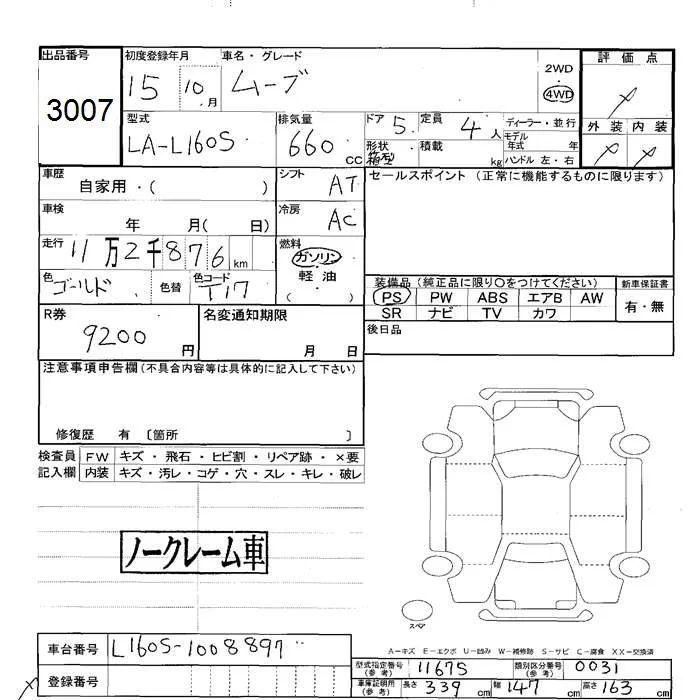 出品番号
3007
初度登録年月
15 10月
車名・グレード
ムーブ
2WD
4WD
評価点
外装 内装
型式
LA-L160S
排気量
660 cc
ドア 5
定員 4人
形状
積載 kg
ディーラー・並行
モデル
年式 年
ハンドル 左・右
車歴
自家用・( )
シフト AT
セールスポイント (正常に機能するものに限ります)
車検
年 月( 日)
冷房 AC
走行
11万2千876km
燃料
ガソリン
軽油
( )
色 ゴールド
色替
色コード T17
装備品 (純正品に限り〇をつけてください)
PS PW ABS エアB AW
SR ナビ TV カワ
新車保証書
有・無
後日品
R券
9200円
名変通知期限
月 日
注意事項申告欄(不具合内容等は具体的に記入して下さい)
修復歴 有 〔箇所 〕
検査員 FW キズ・飛石・ヒビ割・リペア跡・×要
記入欄 内装 キズ・汚レ・コゲ・穴・スレ・キレ・破レ
ノークレーム車
スペア
A-キズ E-エクボ U-凹み W-補修跡 S-サビ C-腐食 XX-交換済
車台番号 L160S-1008897
登録番号
型式指定番号
(参考)
11675
類別区分番号
(参考)
0031
車庫証明用
(参考)
長さ 339cm 幅 147cm 高さ 163cm